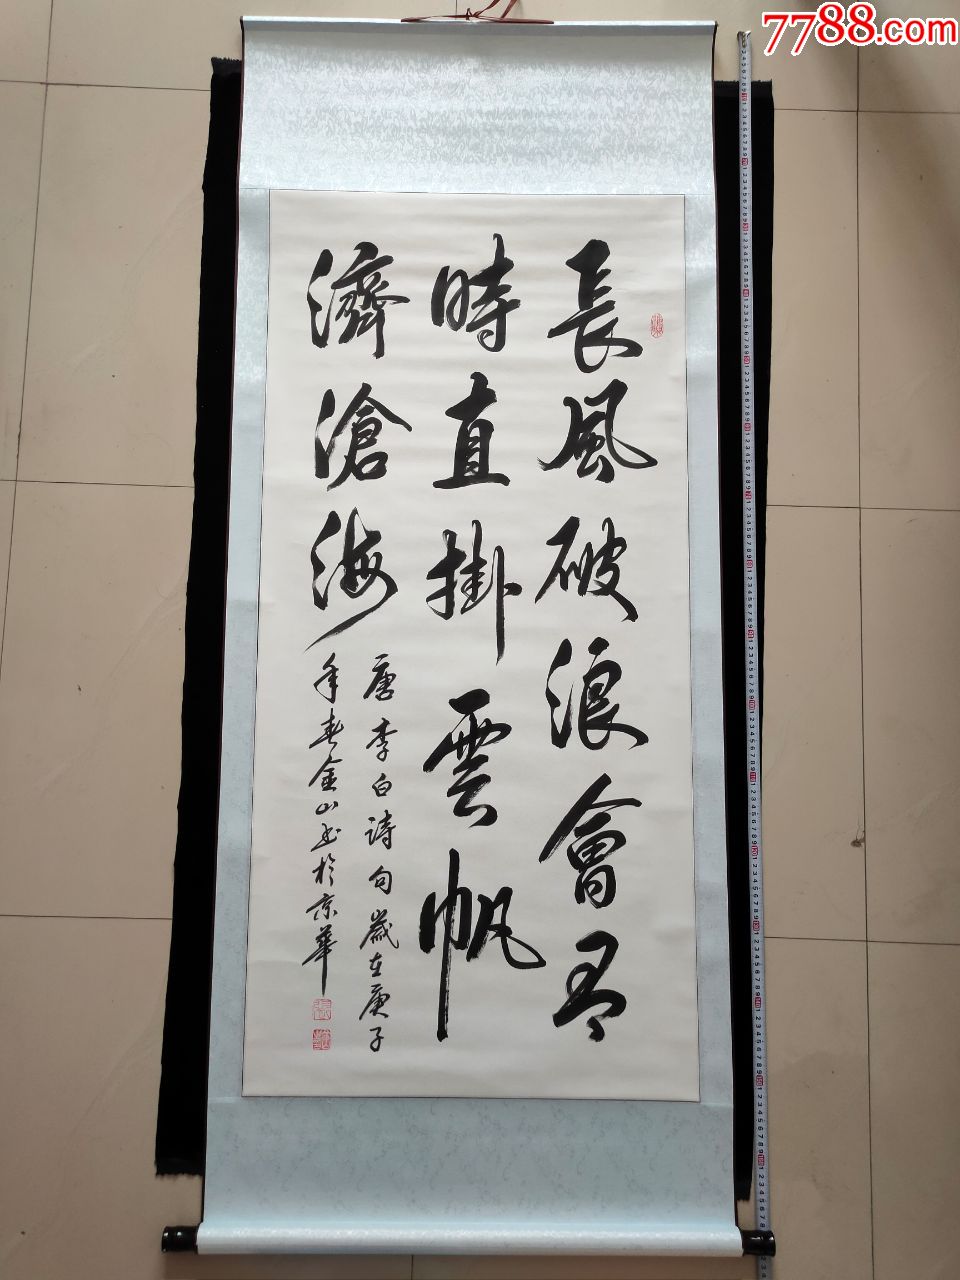 7788.com
長風破浪會有
時直掛雲帆
濟滄海
唐李白詩句歲在庚子
年春金山书於京華